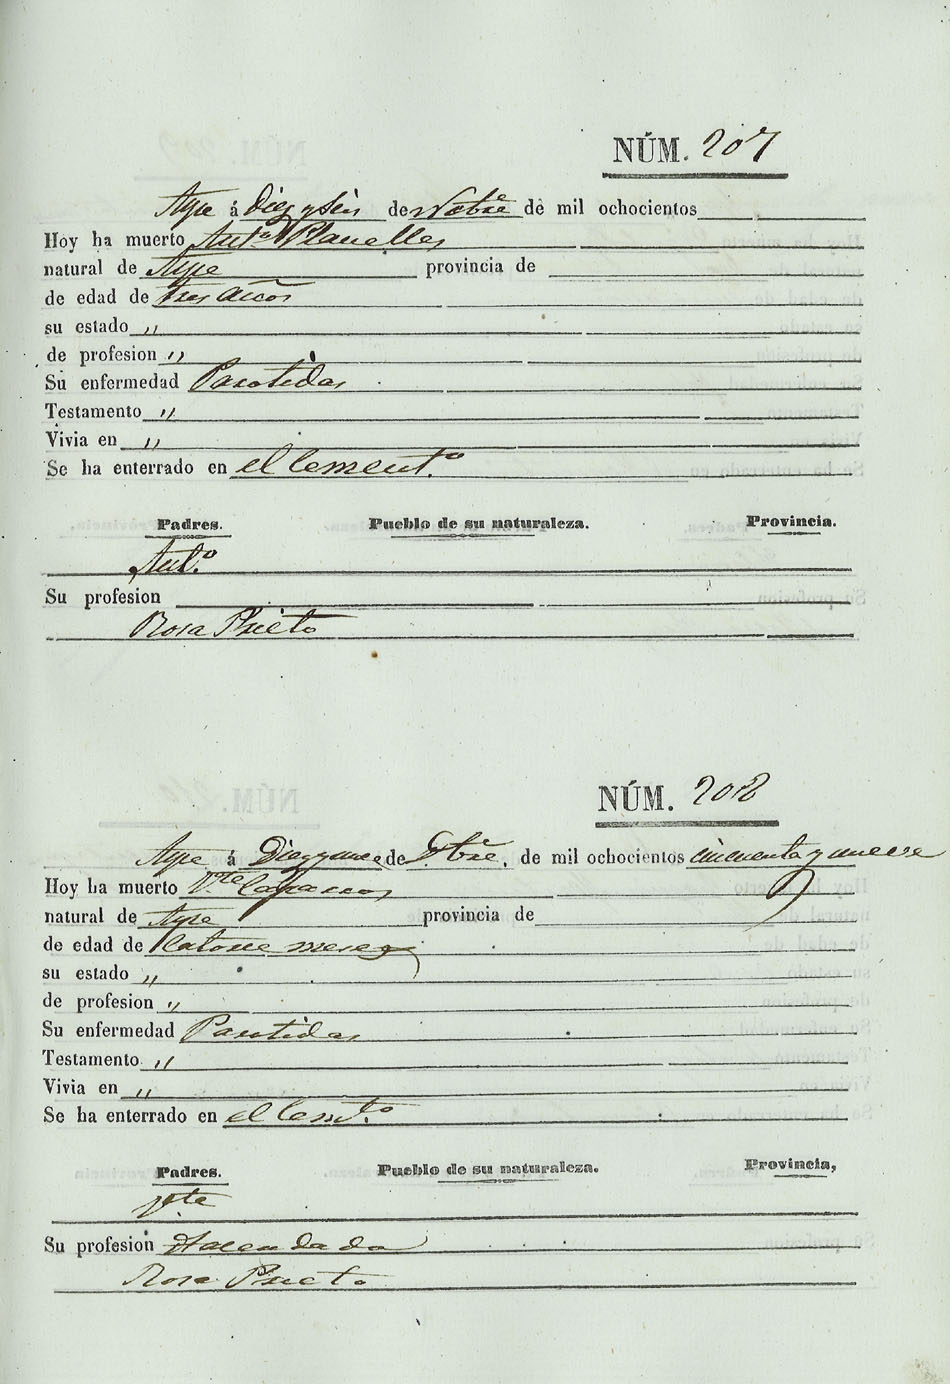 NÚM. 207
Aspe á Diez y seis de Nobre de mil ochocientos
Hoy ha muerto Antº Planelles
natural de Aspe provincia de
de edad de tres años
su estado "
de profesion "
Su enfermedad Parotidas
Testamento "
Vivia en "
Se ha enterrado en el Cementº
Padres. Pueblo de su naturaleza. Provincia.
Antº
Su profesion
Rosa Prieto
NÚM. 208
Aspe á de mil ochocientos cincuenta y nueve
Hoy ha muerto Vte
natural de Aspe provincia de
de edad de Catorce meses
su estado "
de profesion "
Su enfermedad Parotidas
Testamento "
Vivia en "
Se ha enterrado en el Cemtº
Padres. Pueblo de su naturaleza. Provincia,
Vte
Su profesion Hacendado
Rosa Prieto